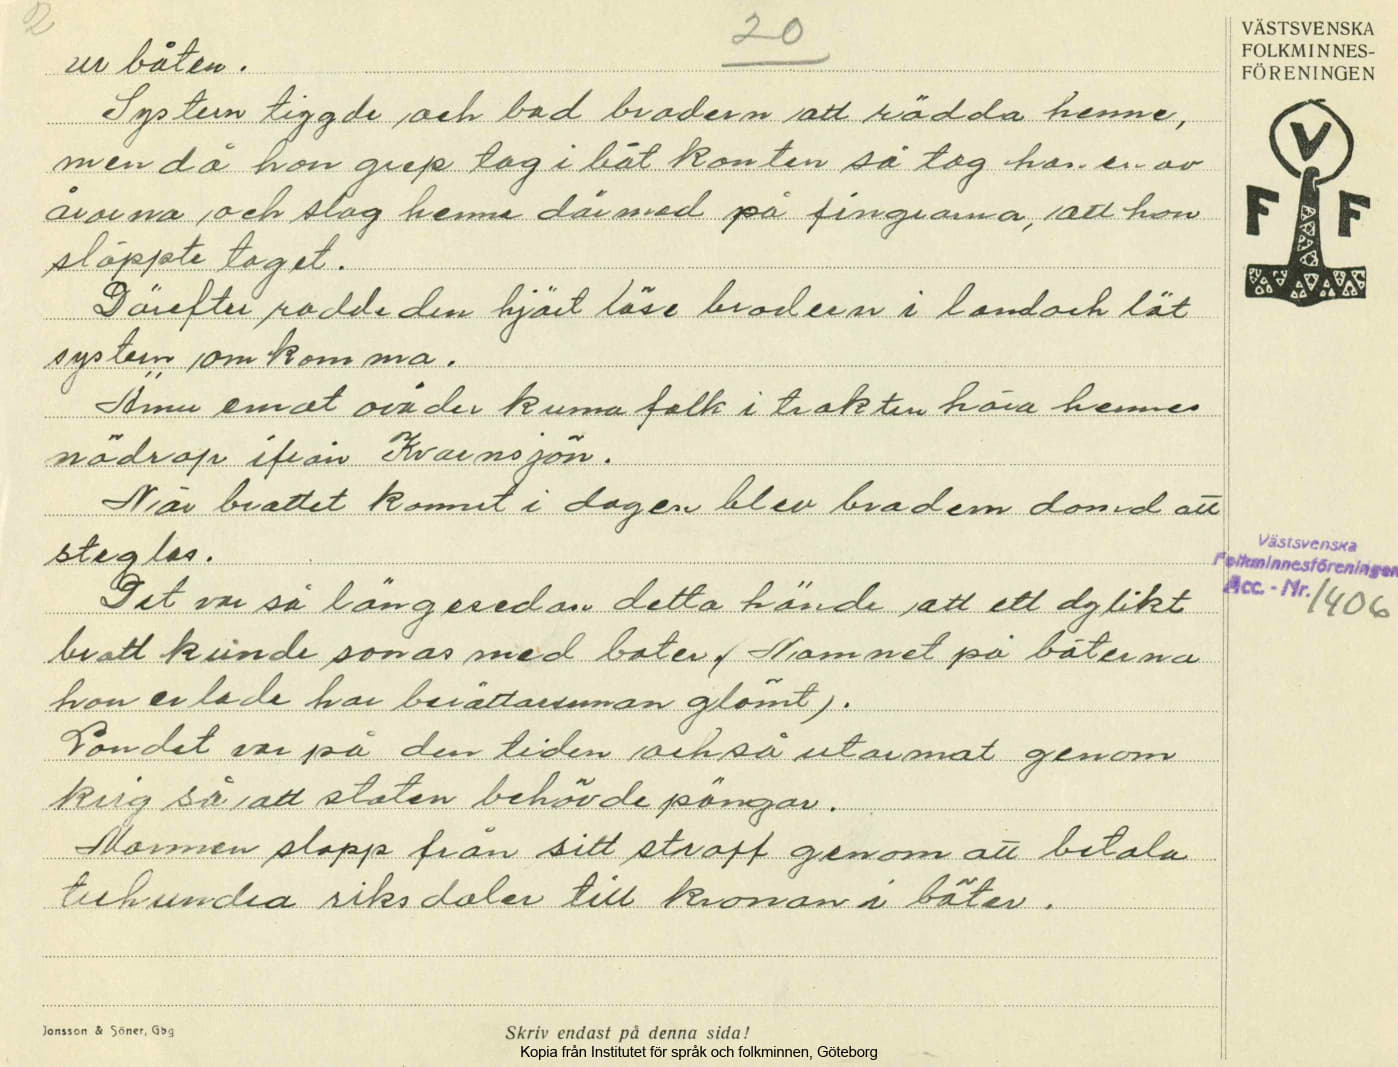 2
20
ur båten.
Systern tiggde och bad brodern att rädda henne,
men då hon grep tag i båt kanten så tog han en av
årorna och slog henne därmed på fingrarna, att hon
släppte taget.
Därefter rodde den hjärt löse brodern i land och lät
systern omkomma.
Ännu emot oväder kunna folk i trakten höra hennes
nödrop ifrån Kvarnsjön.
När brottet kommit i dagen blev brodern dömd att
steglas.
Det var så längesedan detta hände att ett dylikt
brott kunde sonas med böter. (Namnet på böterna
han erlade har berätterskan glömt).
Landet var på den tiden också utarmat genom
krig så att staten behövde pängar.
Mannen slapp från sitt straff genom att betala
trehundra riksdaler till kronan i böter.
VÄSTSVENSKA
FOLKMINNES-
FÖRENINGEN
V
F F
Västsvenska
Folkminnesföreningen
Acc. - Nr. 1406
Jonsson & Söner, Gbg
Skriv endast på denna sida!
Kopia från Institutet för språk och folkminnen, Göteborg